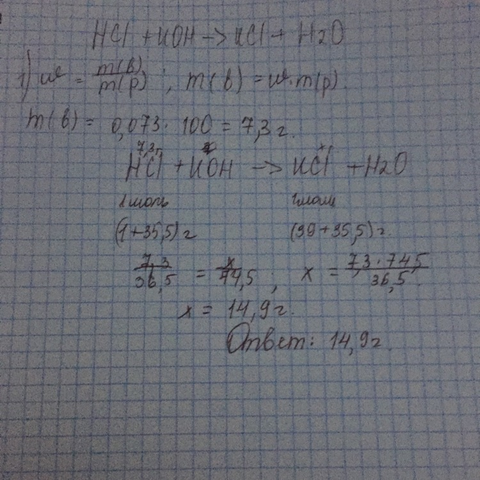 HCl + KOH -> KCl + H2O
1) w = m(в)/m(р) ; m(в) = w·m(р).
m(в) = 0,073 · 100 = 7,3 г.
7,3г x
HCl + KOH -> KCl + H2O
1 моль 1 моль
(1+35,5) г (39+35,5) г.
7,3/36,5 = x/74,5 , x = 7,3·74,5/36,5.
x = 14,9 г.
Ответ: 14,9 г